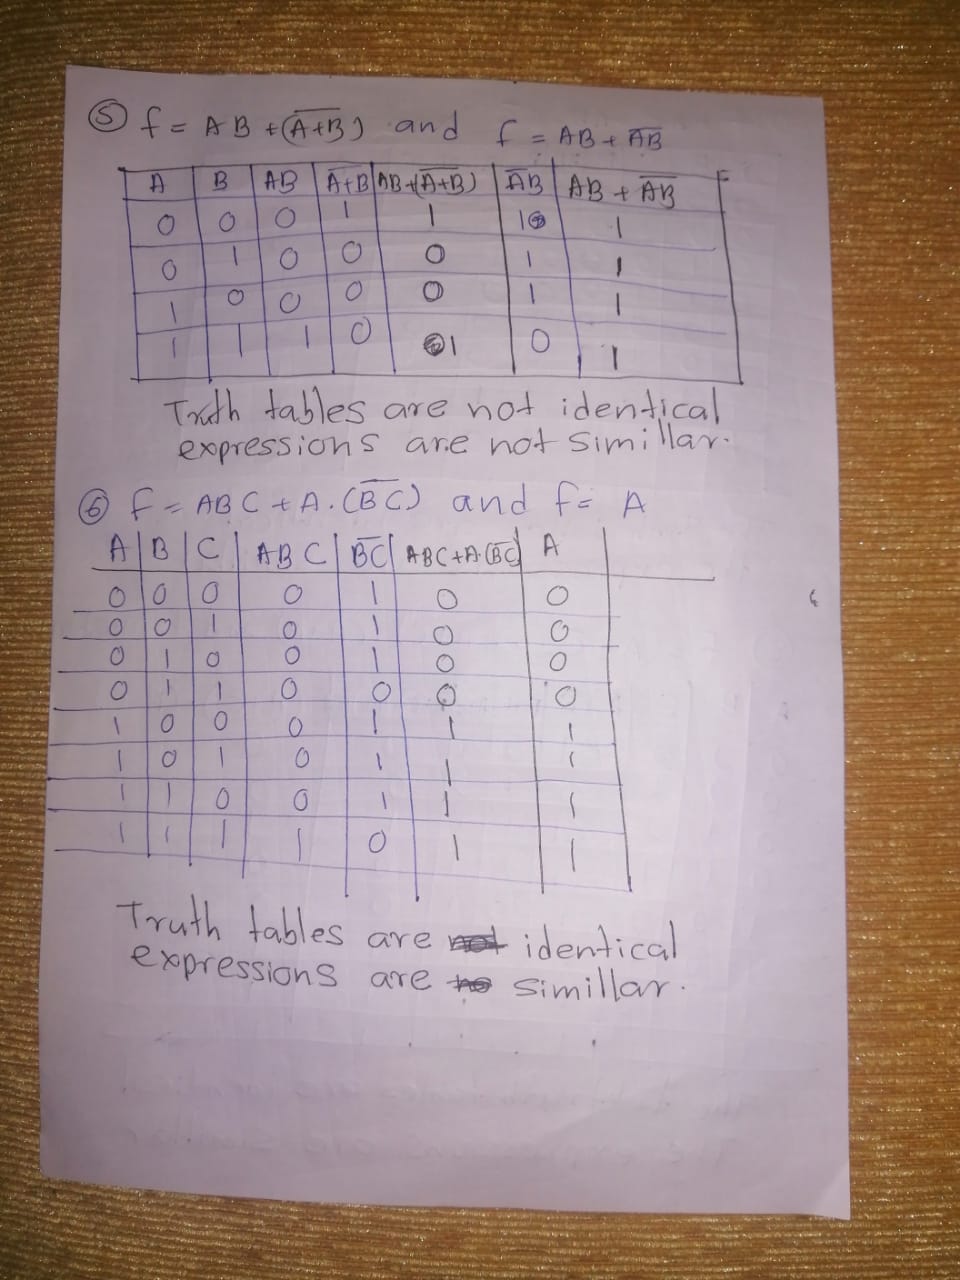 ⑤ f = AB + (A̅+̅B̅) and f = AB + A̅B̅
A B AB A̅+̅B̅ AB+(A̅+̅B̅) A̅B̅ AB + A̅B̅
0 0 0 1 1 1 1
0 1 0 0 0 1 1
1 0 0 0 0 1 1
1 1 1 0 1 0 1
Truth tables are not identical
expressions are not simillar.
⑥ f = ABC + A.(B̅C̅) and f = A
A B C ABC B̅C̅ ABC+A.(B̅C̅) A
0 0 0 0 1 0 0
0 0 1 0 1 0 0
0 1 0 0 1 0 0
0 1 1 0 0 0 0
1 0 0 0 1 1 1
1 0 1 0 1 1 1
1 1 0 0 1 1 1
1 1 1 1 0 1 1
Truth tables are not identical
expressions are no simillar.